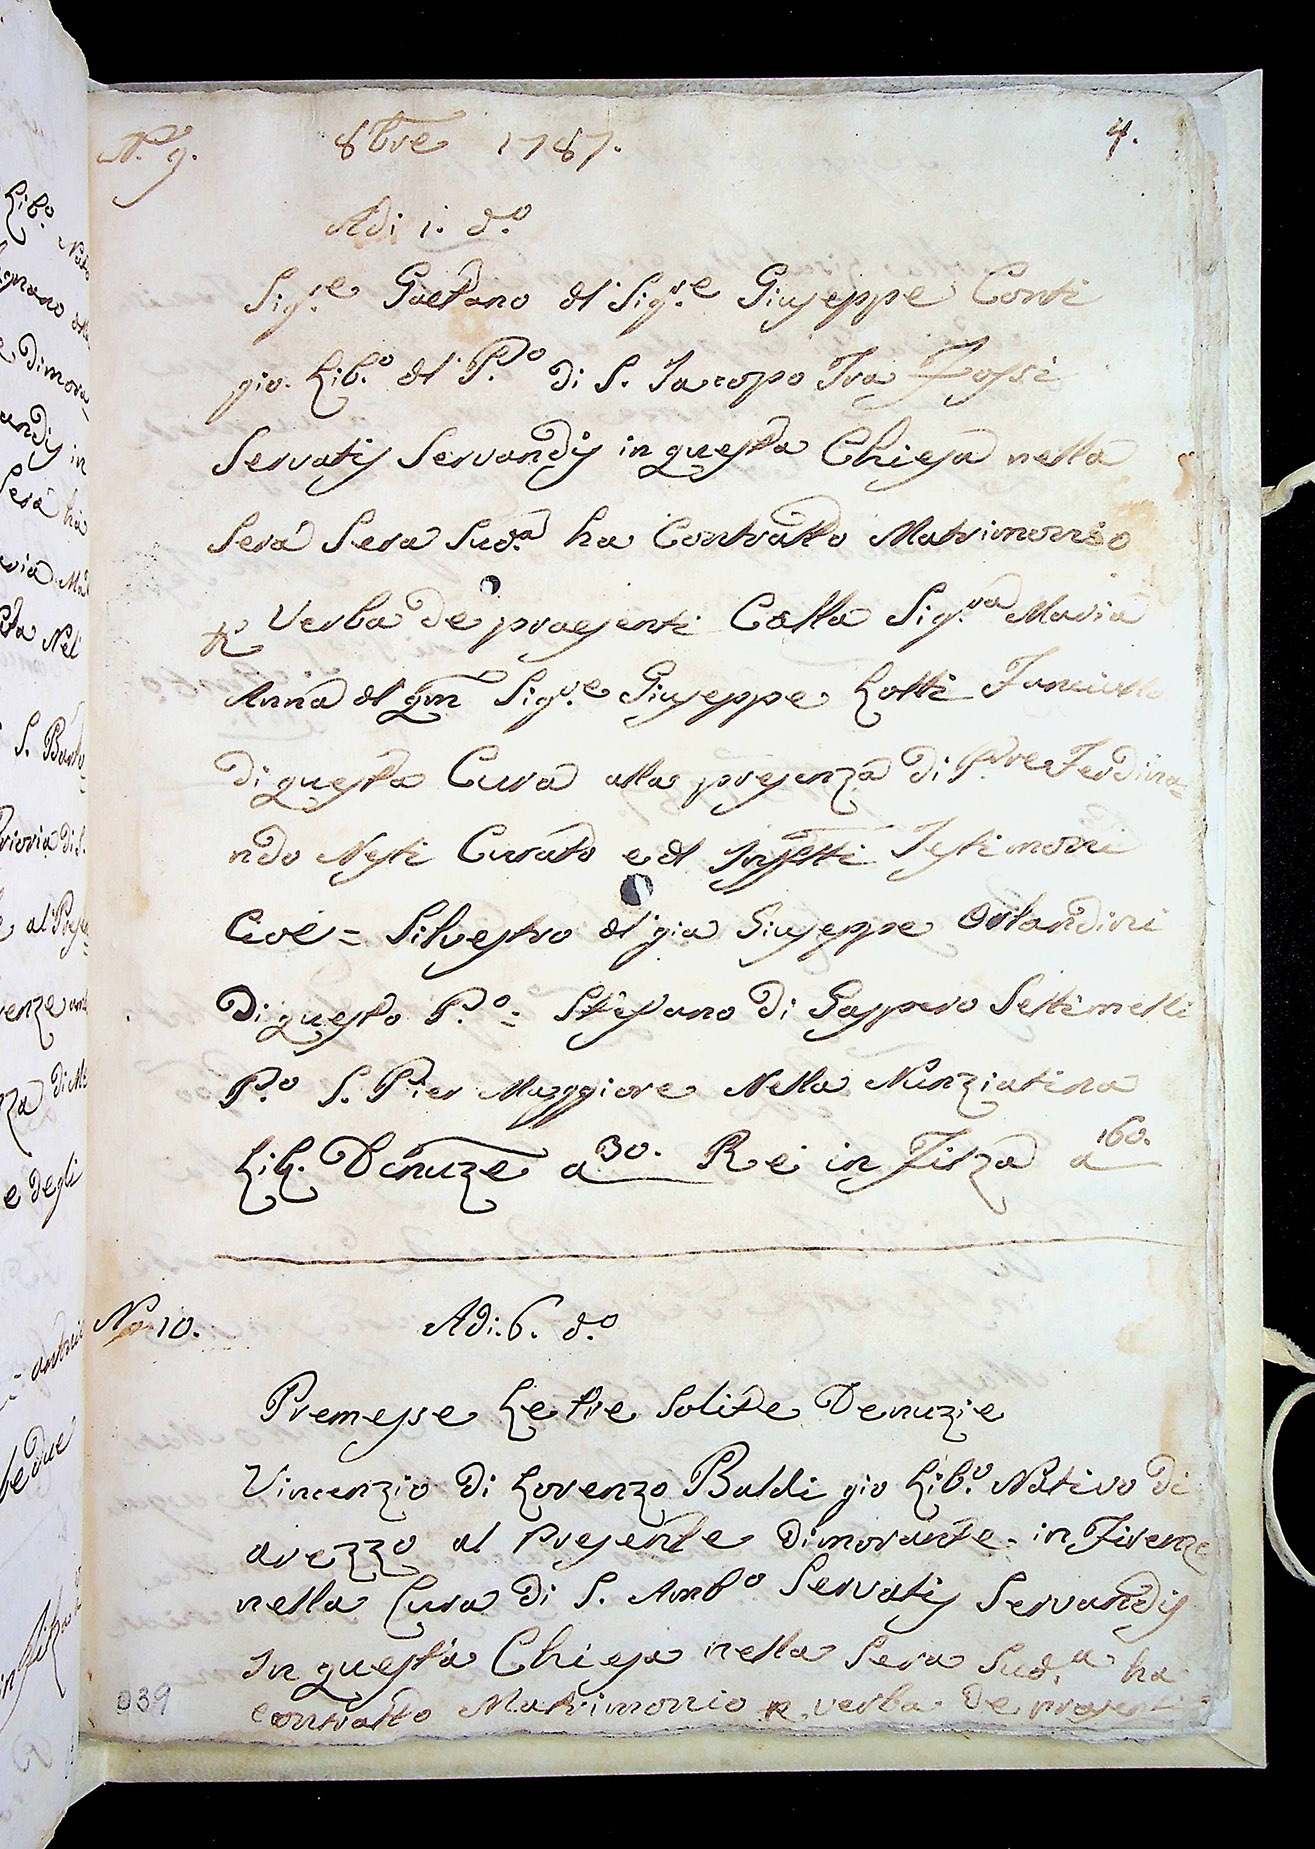 N.º 9. 8bre 1787. 4.
Adi 1. d.º
Sig.re Gaetano dl Sig.re Giuseppe Conti
gio. Lib.º dl P.º di S. Jacopo Tra Fossi
Servatis Servandis in questa Chiesa nella
Sera Sera Sud.a ha Contratto Matrimonio
Verba de praesenti Colla Sig.ra Maria
Anna dl qm Sig.re Giuseppe Lotti Fanciulla
di questa Cura alla presenza di Pre Ferdina=
ndo Nesti Curato e dl Testimoni
Cioè = Silvestro dl gia Giuseppe Orlandini
Di questo P.º = Stefano di Gasspero Settimelli
P.º S. Pier Maggiore Nella Nunziatina
Lib. Denuzie a 30. R e in Filza a 160.
No. 10. Adi. 6. d.º
Premesse Le tre Solite Denuzie
Vincenzio di Lorenzo Baldi gio Lib.º Nativo di
arezzo al Presente Dimorante in Firenze
nella Cura di S. Amb.º Servatis Servandis
in questa Chiesa nella Sera Sud.a ha
contratto Matrimonio verba de presenti
039